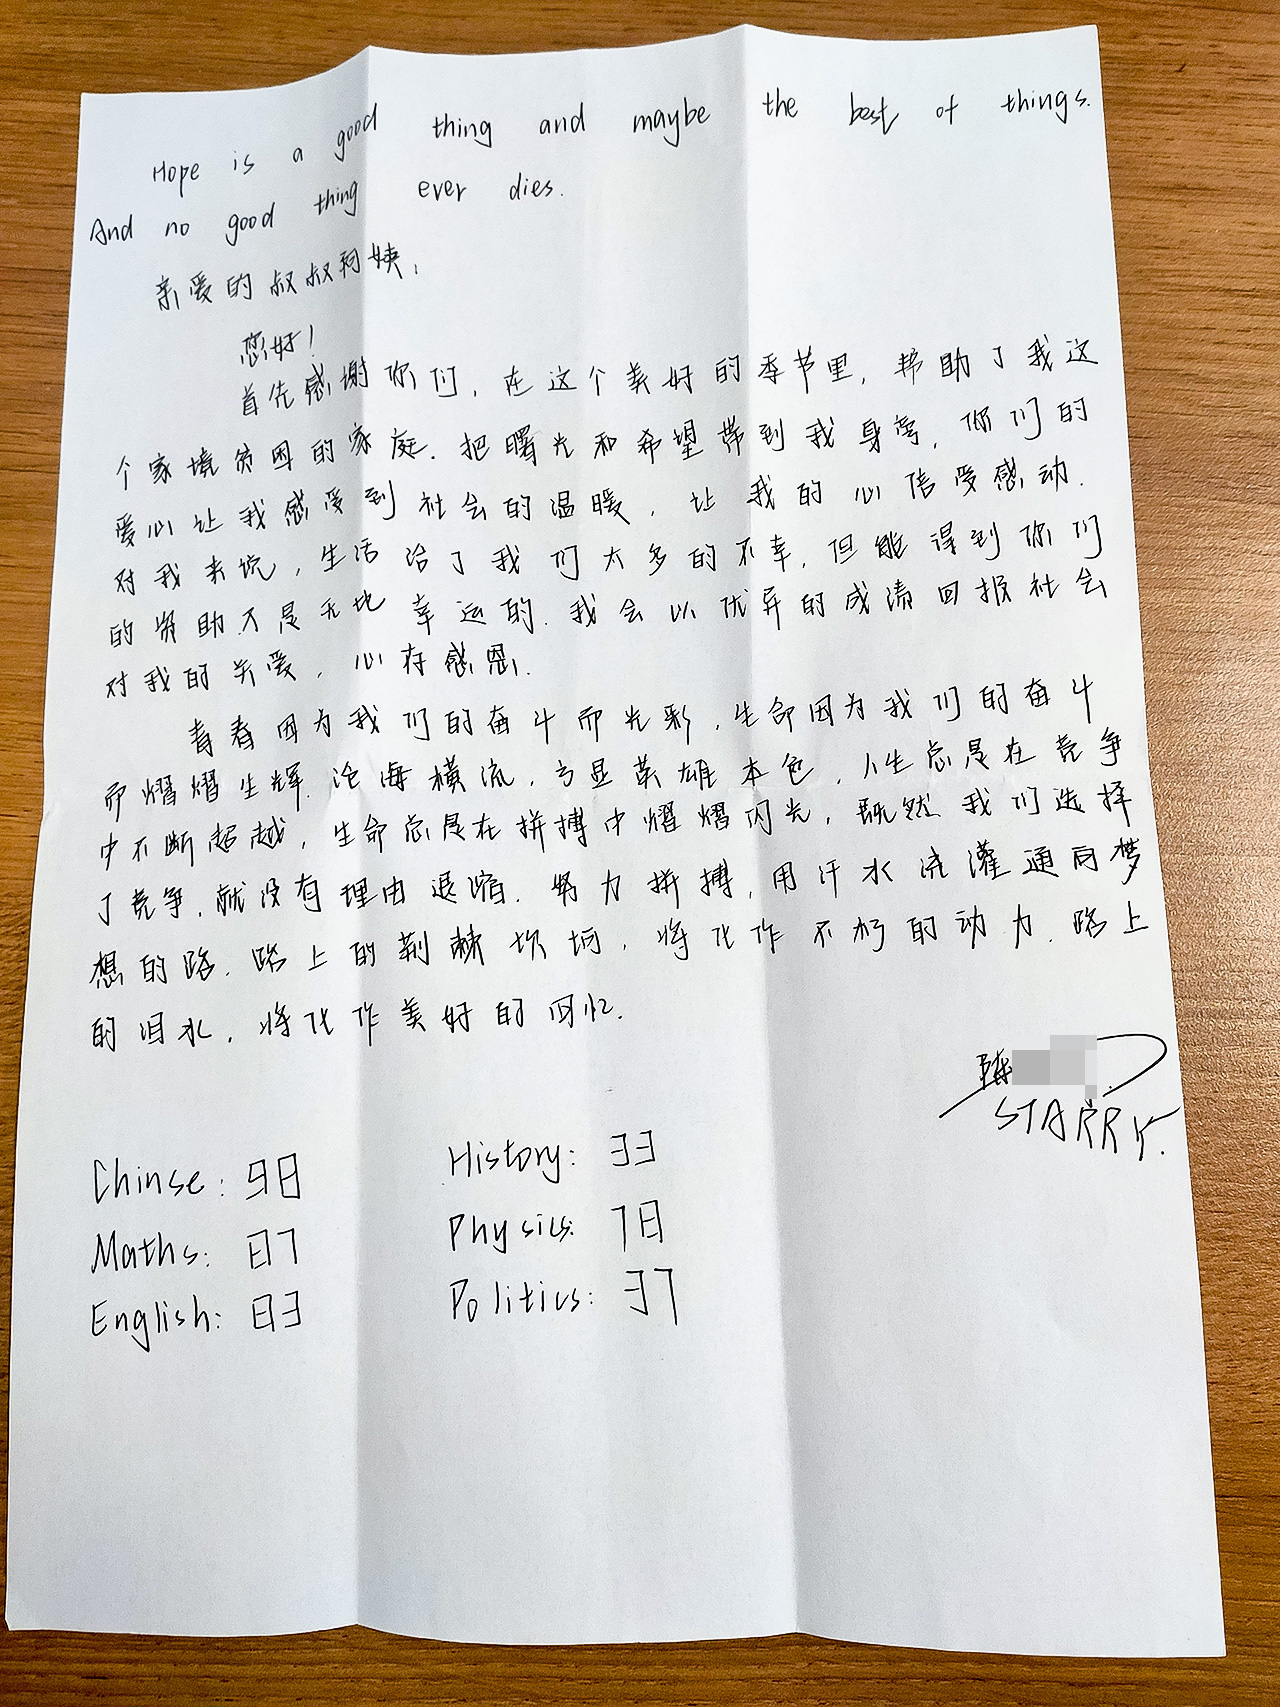 Hope is a good thing and maybe the best of things.
And no good thing ever dies.
亲爱的叔叔阿姨,
您好!
首先感谢你们,在这个美好的季节里,帮助了我这
个家境贫困的家庭.把曙光和希望带到我身旁,你们的
爱心让我感受到社会的温暖,让我的心倍受感动.
对我来说,生活给了我们太多的不幸,但能得到你们
的资助又是无比幸运的.我会以优异的成绩回报社会
对我的关爱,心存感恩.
青春因为我们的奋斗而光彩,生命因为我们的奋斗
而熠熠生辉.沧海横流,方显英雄本色,人生总是在竞争
中不断超越,生命总是在拼搏中熠熠闪光,既然我们选择
了竞争,就没有理由退缩.努力拼搏,用汗水浇灌通向梦
想的路.路上的荆棘坎坷,将化作不朽的动力.路上
的泪水,将化作美好的回忆.
陈
STARRY.
Chinse: 98 History: 33
Maths: 87 Physics: 78
English: 83 Politics: 37